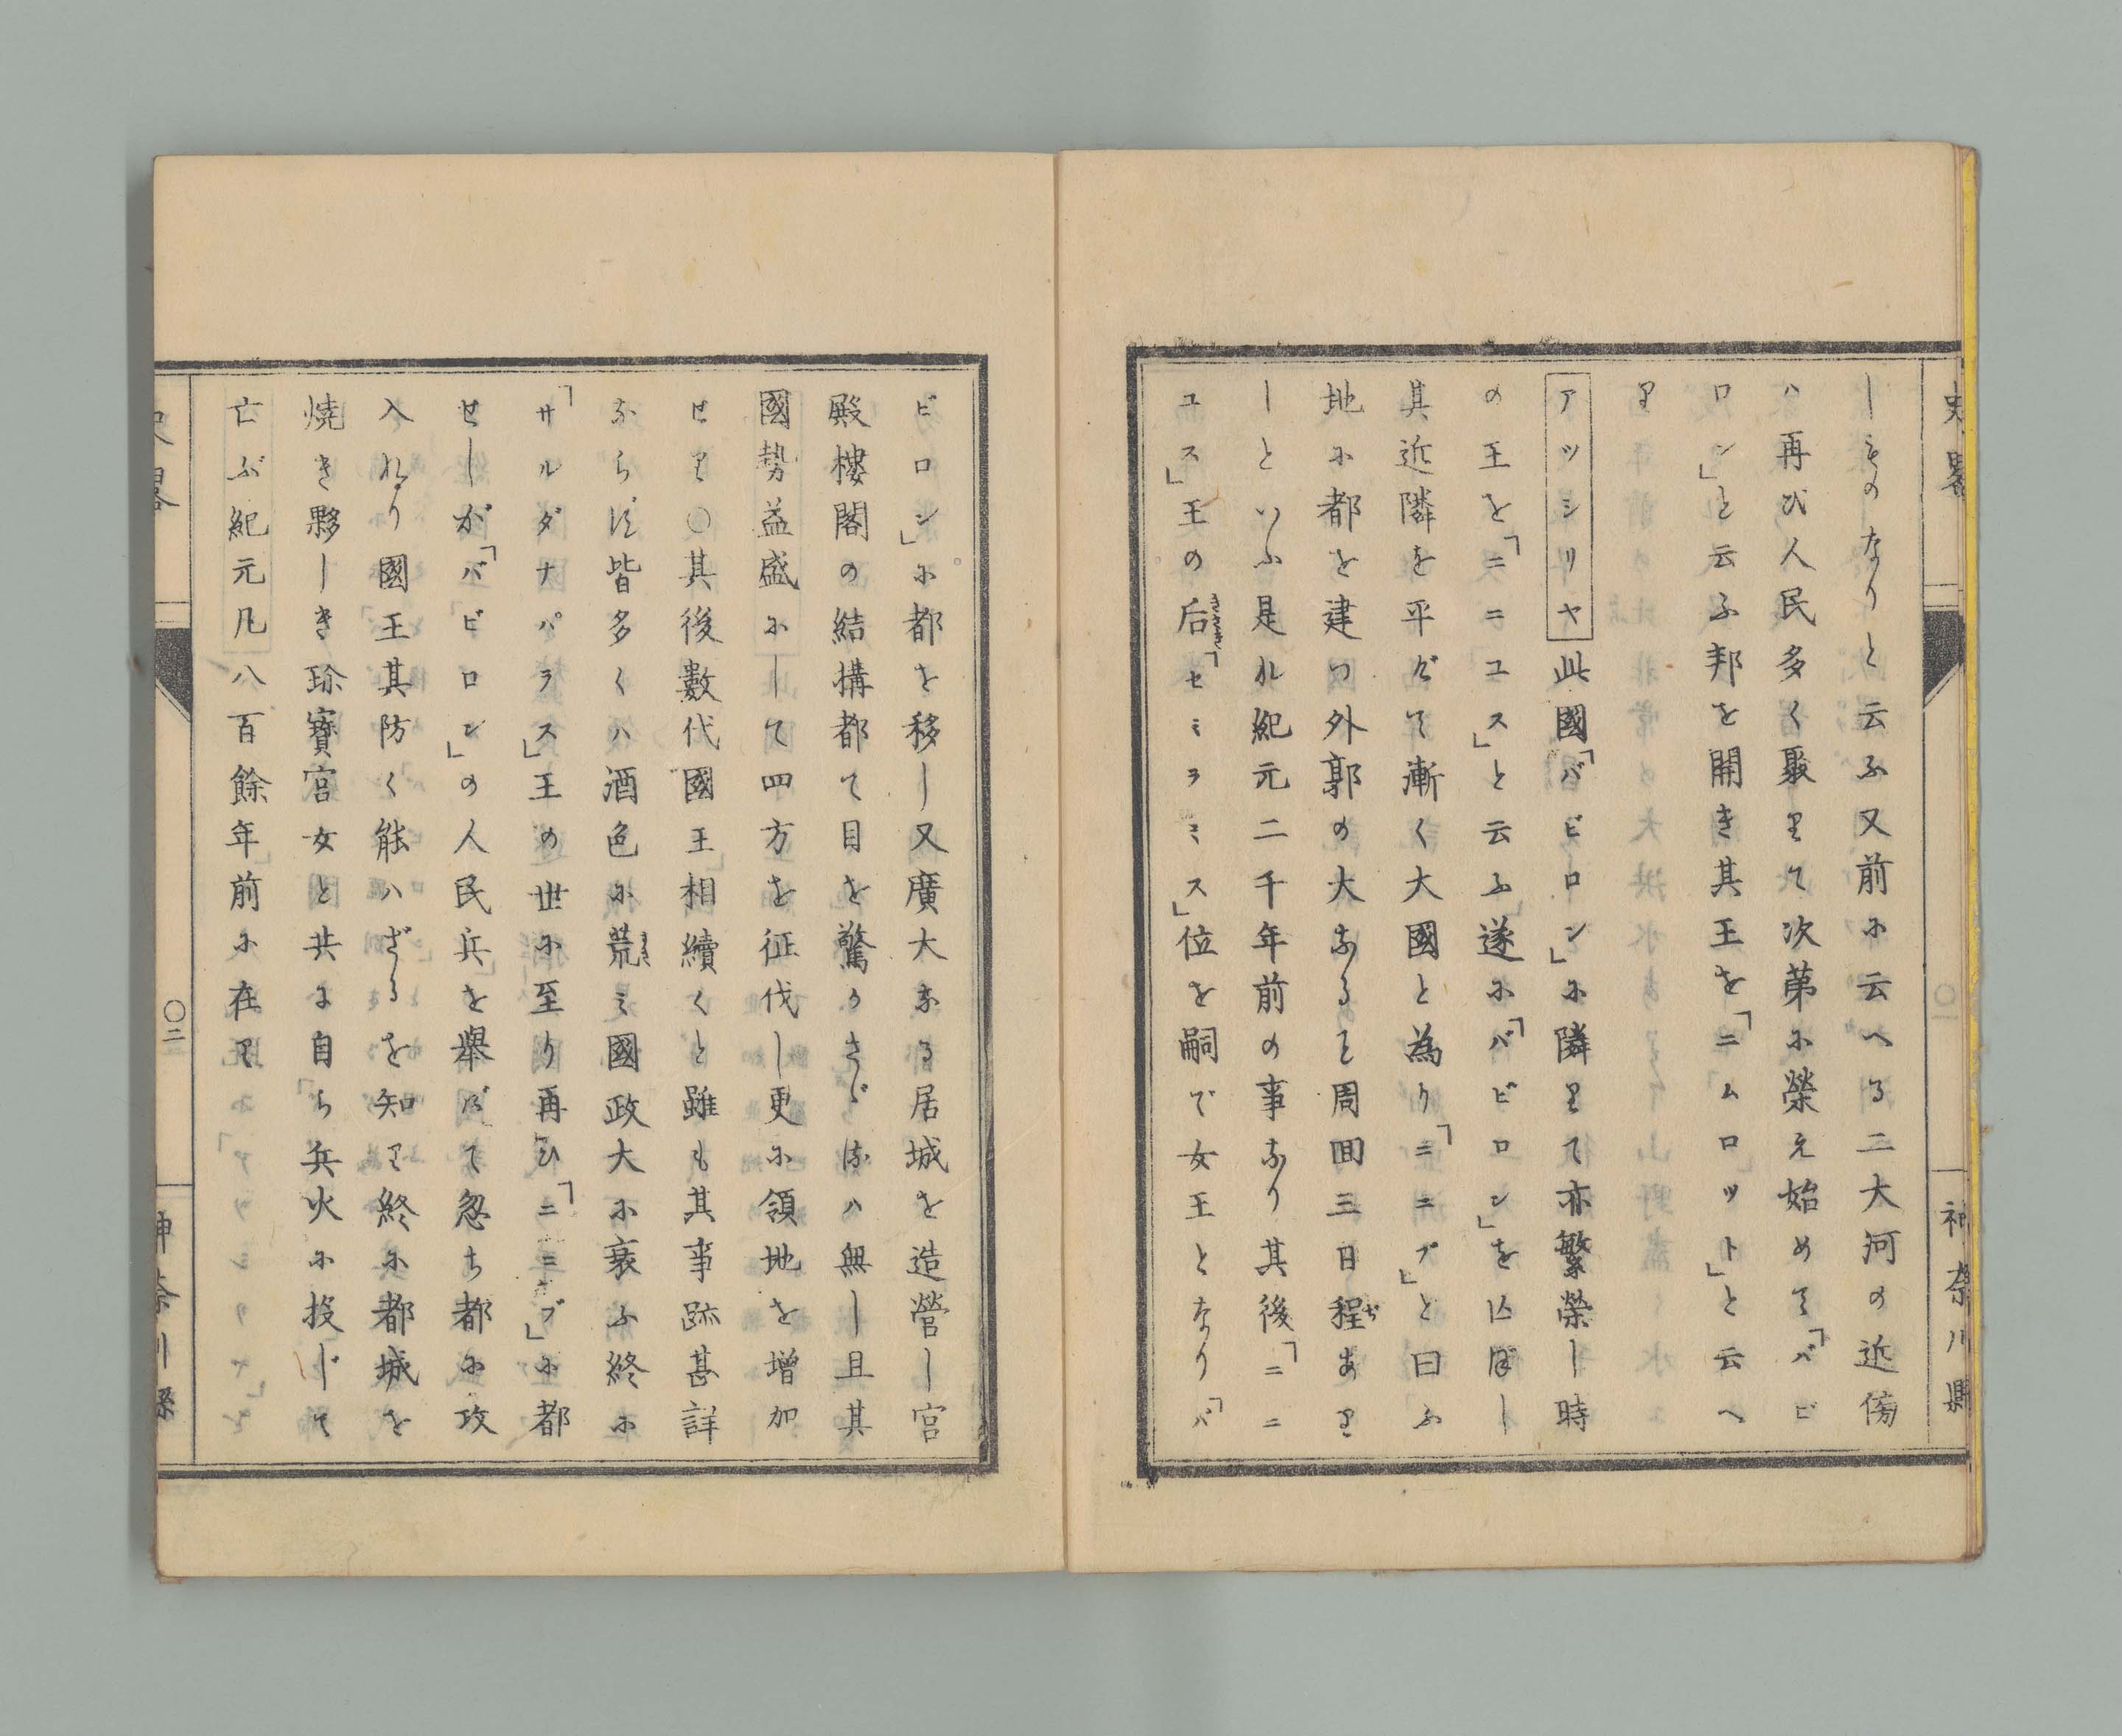 史畧
神奈川縣
しものなりと云ふ又前に云へる二大河の近傍
ハ再び人民多く聚りて次第に榮え始めて「バビ
ロン」と云ふ邦を開き其王を「ニムロット」と云へ
り
アツシリヤ此國「バビロン」に隣りて亦繁榮し時
の王を「ニニユス」と云ふ遂に「バビロン」を亾ぼし
其近隣を平げて漸く大國と為り「ニニブ」と曰ふ
地に都を建つ外郭の大なること周囬三日程ぢあり
しといふ是れ紀元二千年前の事なり其後「ニニ
ユス」王の后きさき「セミラミス」位を嗣で女王となり「バ
ビロン」に都を移し又廣大なる居城を造營し宮
殿樓閣の結構都て目を驚かさゞるハ無し且其
國勢益盛にして四方を征伐し更に領地を增加
せり〇其後數代國王相續くと雖も其事跡甚詳
ならず皆多くハ酒色に荒すさミ國政大に衰ふ終に
「サルダナパラス」王の世に至り再ひ「ニニブ」に都
せしが「バビロン」の人民兵を舉げて忽ち都に攻
入れり國王其防く能ハざるを知り終に都城を
燒き夥しき珎寶宮女と共に自ら兵火に投じて
亡ぶ紀元凡八百餘年前に在り
史畧
〇二
神奈川縣